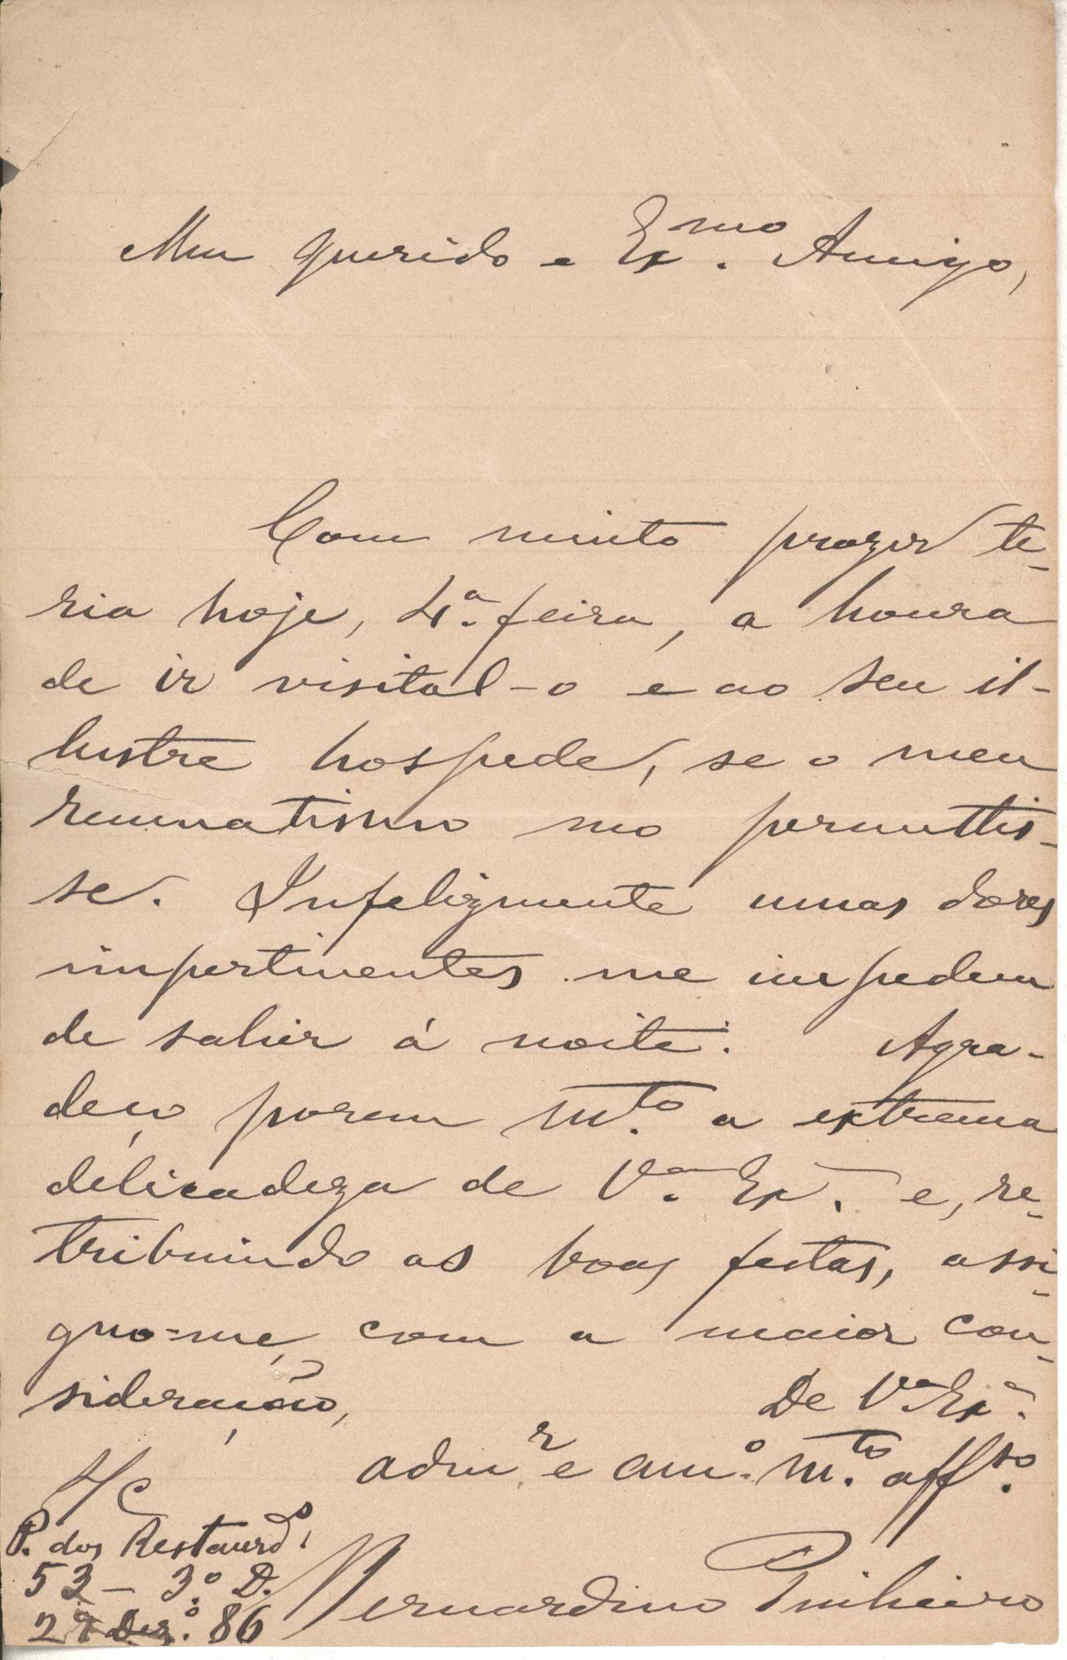 Meu querido e Ex.mo Amigo,
Com muito prazer te-
ria hoje, 4.ª feira, a honra
de ir visital-o e ao seu il-
lustre hospede, se o meu
reumatismo mo permittis-
se. Infelizmente umas dores
impertinentes me impedem
de sahir á noite. Agra-
deço porem m.to a extrema
delicadeza de V.ª Ex.ª e, re-
tribuindo as boas festas, assi-
gno-me, com a maior con-
sideração,
De V.ª Ex.ª
adm.r e am.º m.to aff.to
S/C
P. dos Restaur.es
53 – 3.º D.
Dez.º 86
Bernardino Pinheiro